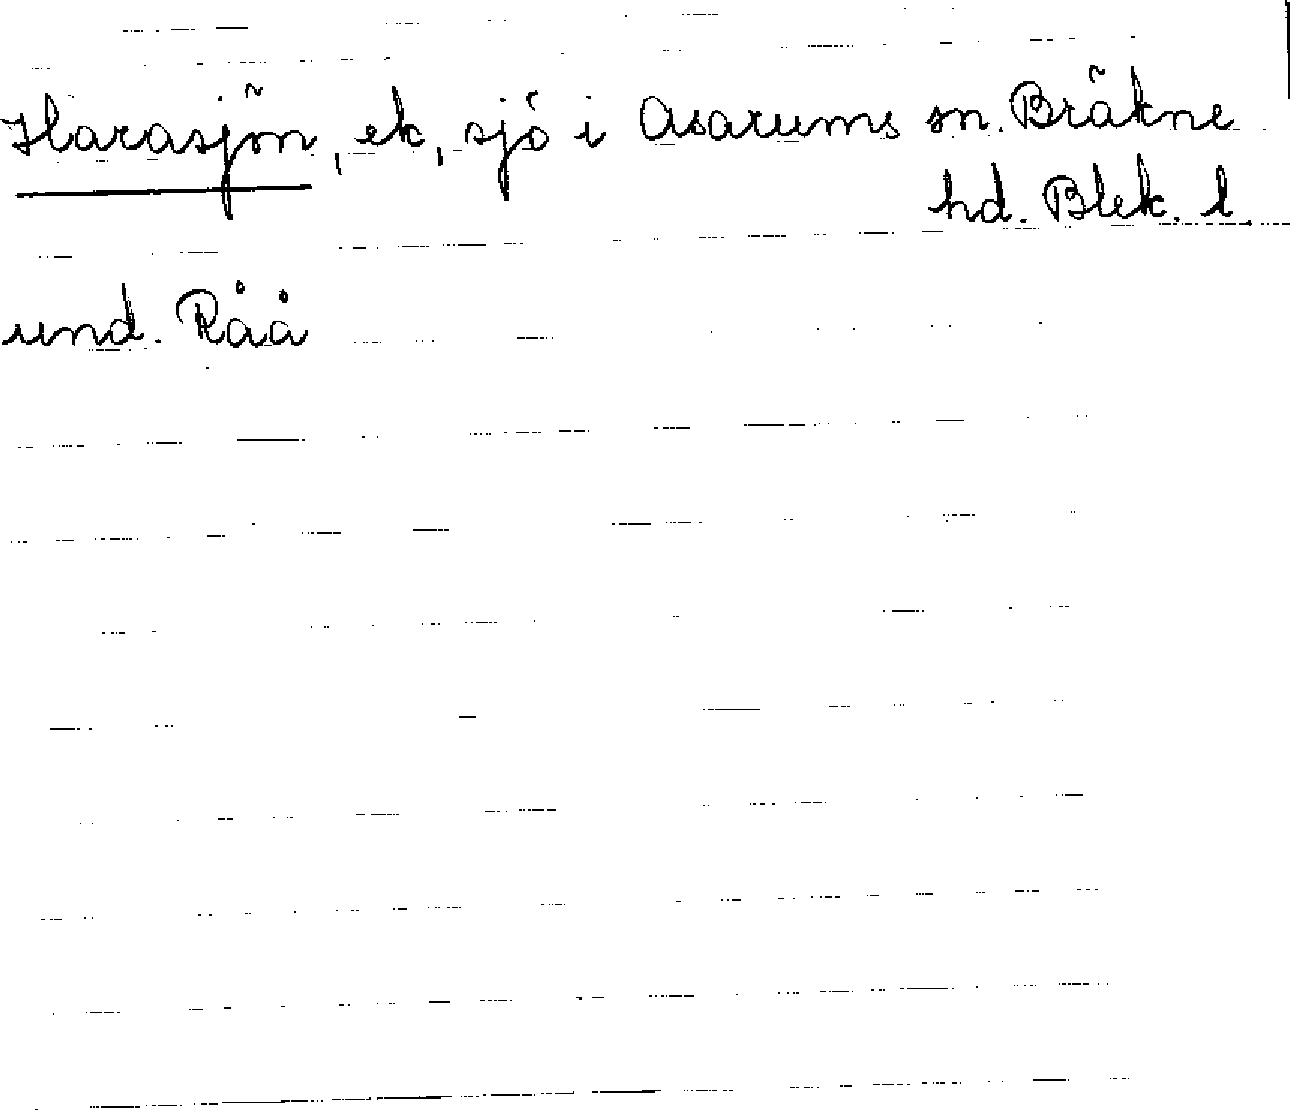 Harasjön, ek, sjö i Asarums sn. Bräkne
hd. Blek. l.
und. Råå